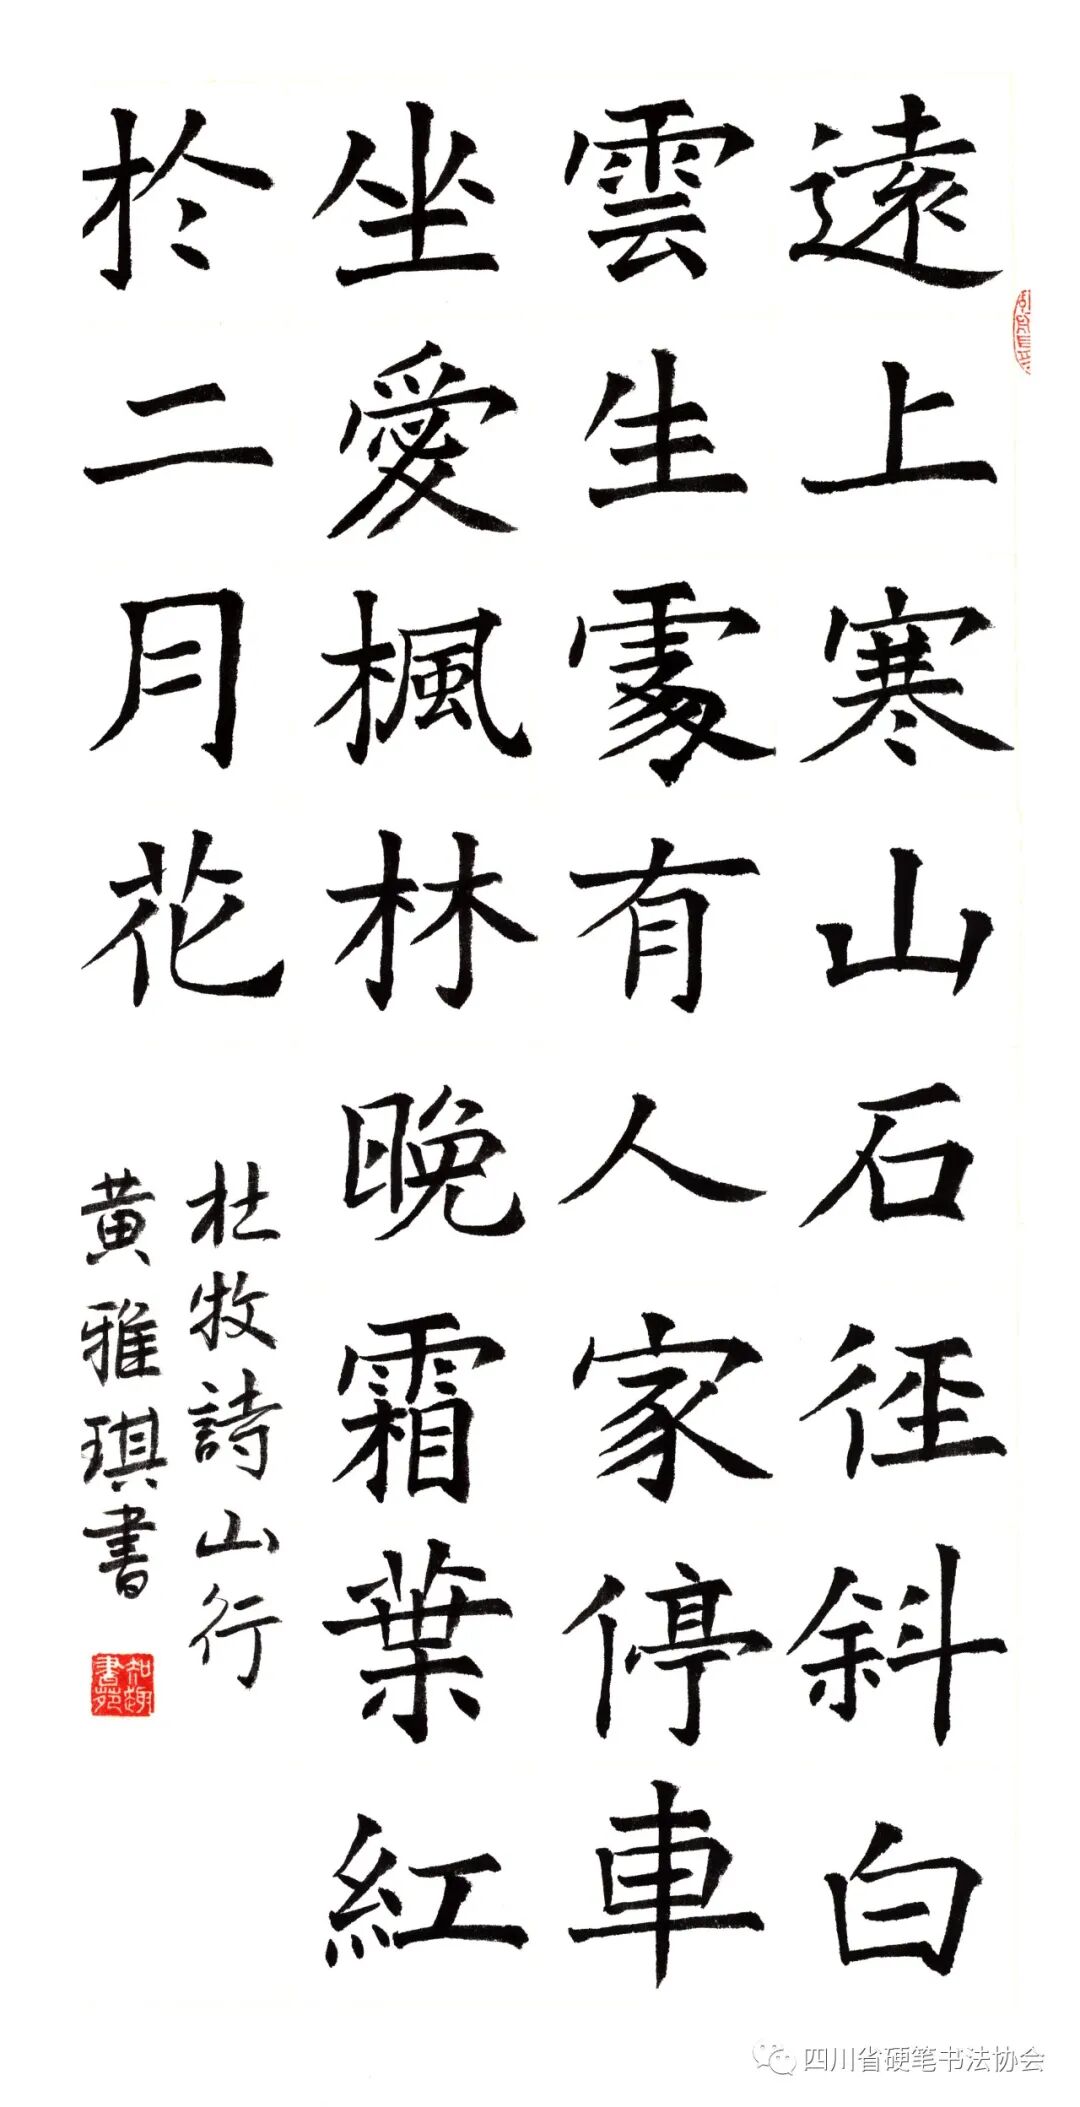 遠上寒山石径斜白
雲生處有人家停車
坐愛楓林晚霜葉紅
於二月花
杜牧詩山行
黄雅琪書
知趣書苑
四川省硬笔书法协会